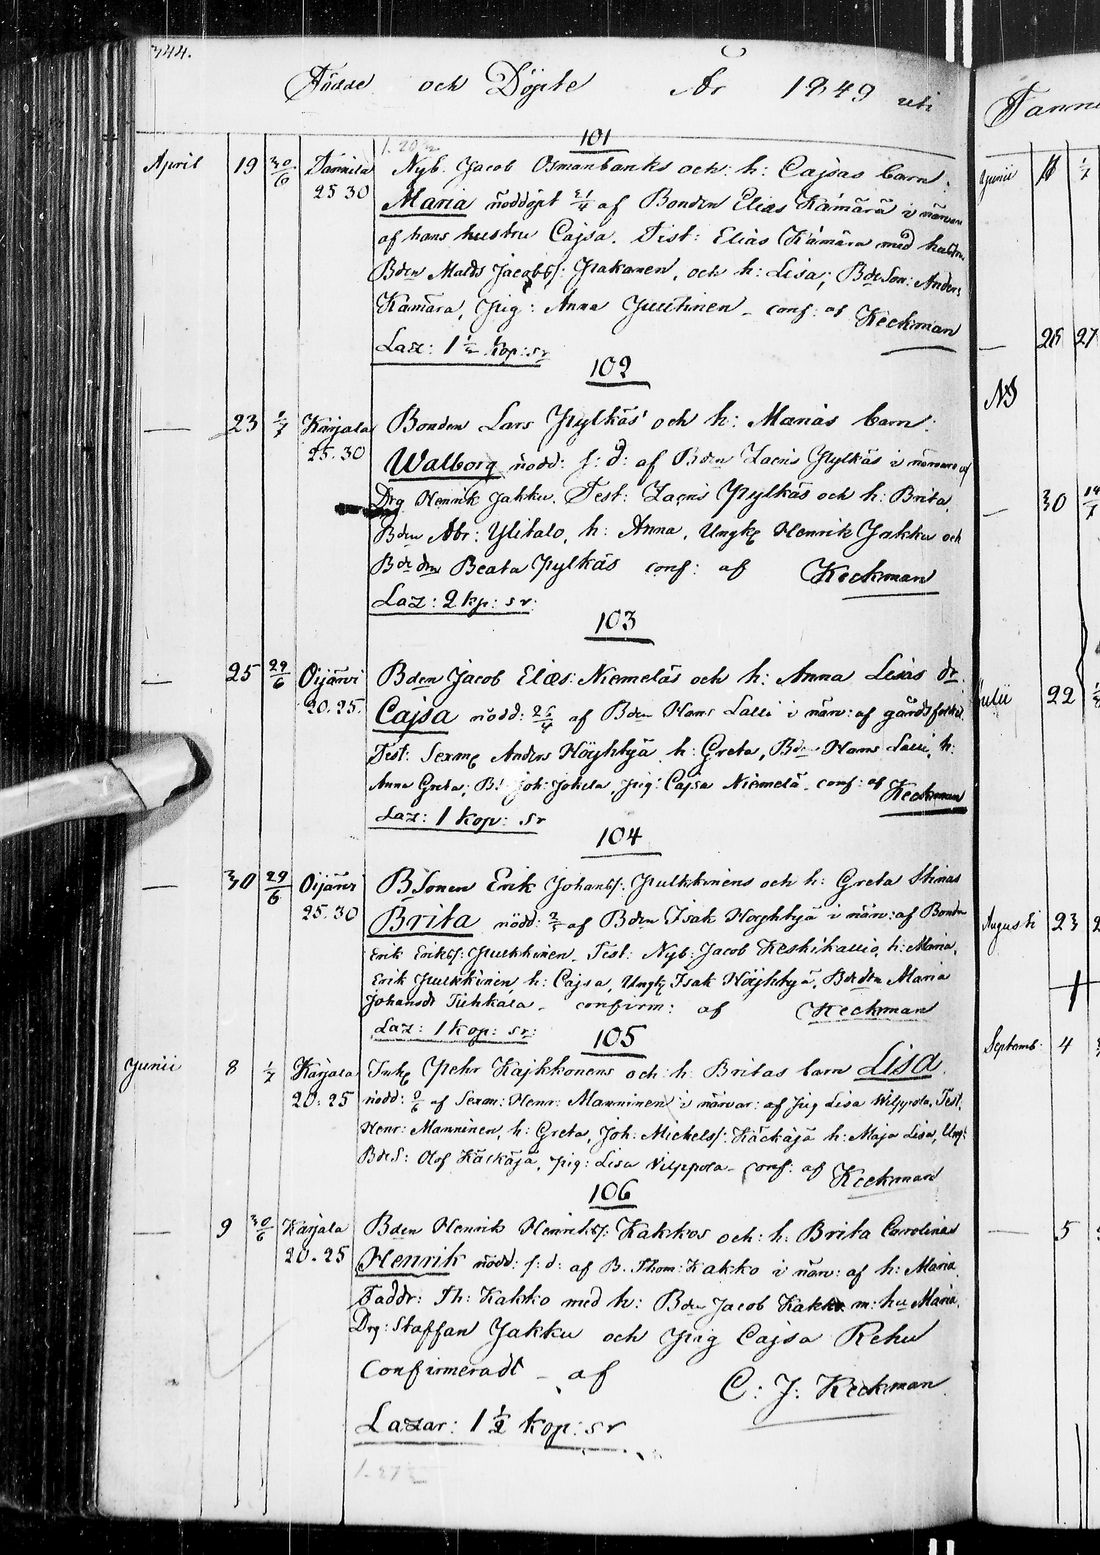 344.
Födde och Döpte År 1849 uti
101
April 19 30/6 Tannila Nyb. Jacob Osmanbanks och h: Cajsas barn:
25 30 Maria nöddöpt 21/4 af Bonden Elias Kämärä i närvaro
af hans hustru Cajsa. Test: Elias Kämära med hustru,
Bden Matts Jacobs: Pakanen, och h: Lisa; BdeSon: Anders
Kämära, Pig: Anna Juutinen - conf: af Keckman
Laz: 1 1/2 kop: sr
102
— 23 1/7 Karjala Bonden Lars Pylkäs och h: Marias barn:
25. 30 Walborg nödd: s: d: af Bden Zacris Pylkäs i närvaro af
Drg Henrik Jakku. Test: Zacris Pylkäs och h: Brita,
Bden Abr: Ylitalo, h: Anna, Ungk Henrik Jakku och
Bde dm Beata Pylkäs conf: af Keckman
Laz: 2 kp: sr:
103
— 25 29/6 Oijärvi Bden Jacob Elias: Niemeläs och h: Anna Lisas dr.
20. 25. Cajsa nödd: 26/4 af Bden Hans Lalli i närv: af gårdsfolket.
Test: Sexm Anders Höyhtyä h: Greta, Bde Hans Lalli, h:
Anna Greta; B: Joh: Jokela, pig: Cajsa Niemelä - conf: af Keckman
Laz: 1 kop: sr
104
— 30 29/6 Oijärvi BSonen Erik Johans: Pulkkinens och h: Greta Stinas
25. 30 Brita nödd: 2/5 af Bden Isak Höyhtyä i närv: af Bonden
Erik Eriks: Pulkkinen. Test: Nyb: Jacob Keskikallio, h: Maria,
Erik Pulkkinen, h: Cajsa, Ungk Isak Höyhtyä, Bdedtn Maria
Johansdt Tiihkala - confirm: af Keckman
Laz: 1 kop: sr:
105
Junii 8 1/7 Karjala Inh Pehr Kajkkonens och h: Britas barn Lisa.
20. 25 nödd: 9/6 af Sexm: Henr: Manninen i närvar: af Pig Lisa Wilppola, Test.
Henr: Manninen, h: Greta, Joh: Mickels: Käckäjä h: Maja Lisa, Ung:
BdeS: Olof Käckäjä, pig: Lisa Wilppola - conf: af Keckman
106
— 9 30/6 Karjala Bden Henrik Henriks: Kakkos och h: Brita Carolinas
20. 25 Henrik nödd: s: d: af B. Thom: Kakko i närv: af h: Maria.
Faddr: Th: Kakko med h: Bden Jacob Kakko m: hu Maria,
Drg: Staffan Jakku och Pig Cajsa Rehu
Confirmeradt - af C: J: Keckman
Lazar: 1 1/2 kop: sr
Junii 11 1/7
— 26 27
NB
— 30 14/7
Julii 22
Augusti 23
Septemb: 4
— 5